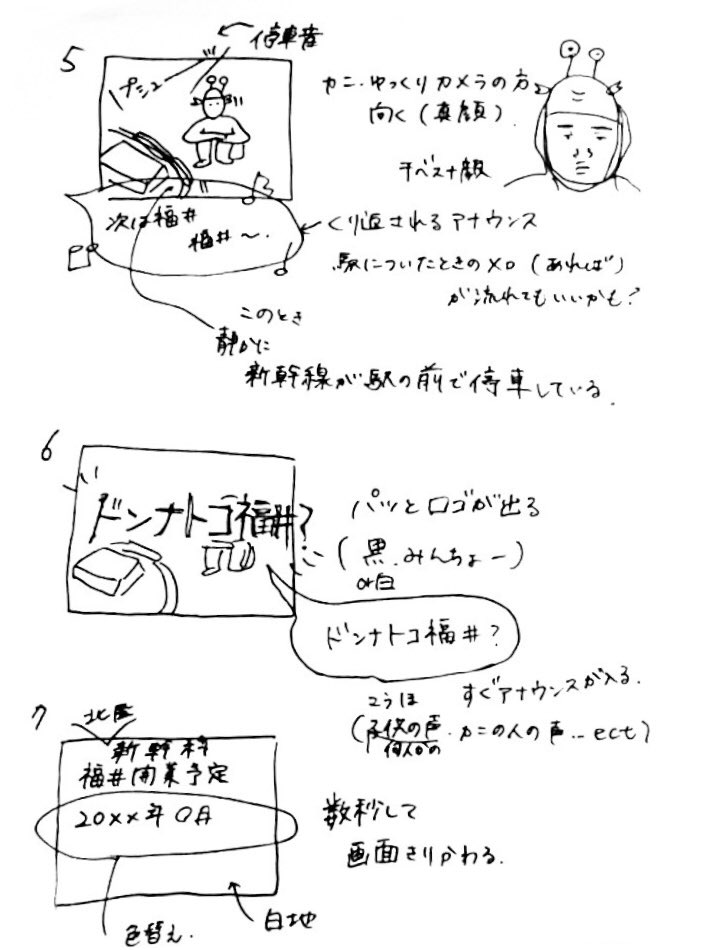 5
停車音
プシュー
カニ・ゆっくりカメラの方
向く(真顔)
チベスナ顔
次は福井
福井〜.
くり返されるアナウンス
駅についたときのメロ(あれば)
が流れてもいいかも?
このとき
静かに
新幹線が駅の前で停車している.
6
ドンナトコ福井?
パッとロゴが出る
(黒.みんちょー)
or白
ドンナトコ福井?
すぐアナウンスが入る.
こうほ
(子供の声・カニの人の声…ect)
何人かの
7
北陸
新幹線
福井開業予定
20××年〇月
数秒して
画面きりかわる.
色替え.
白地